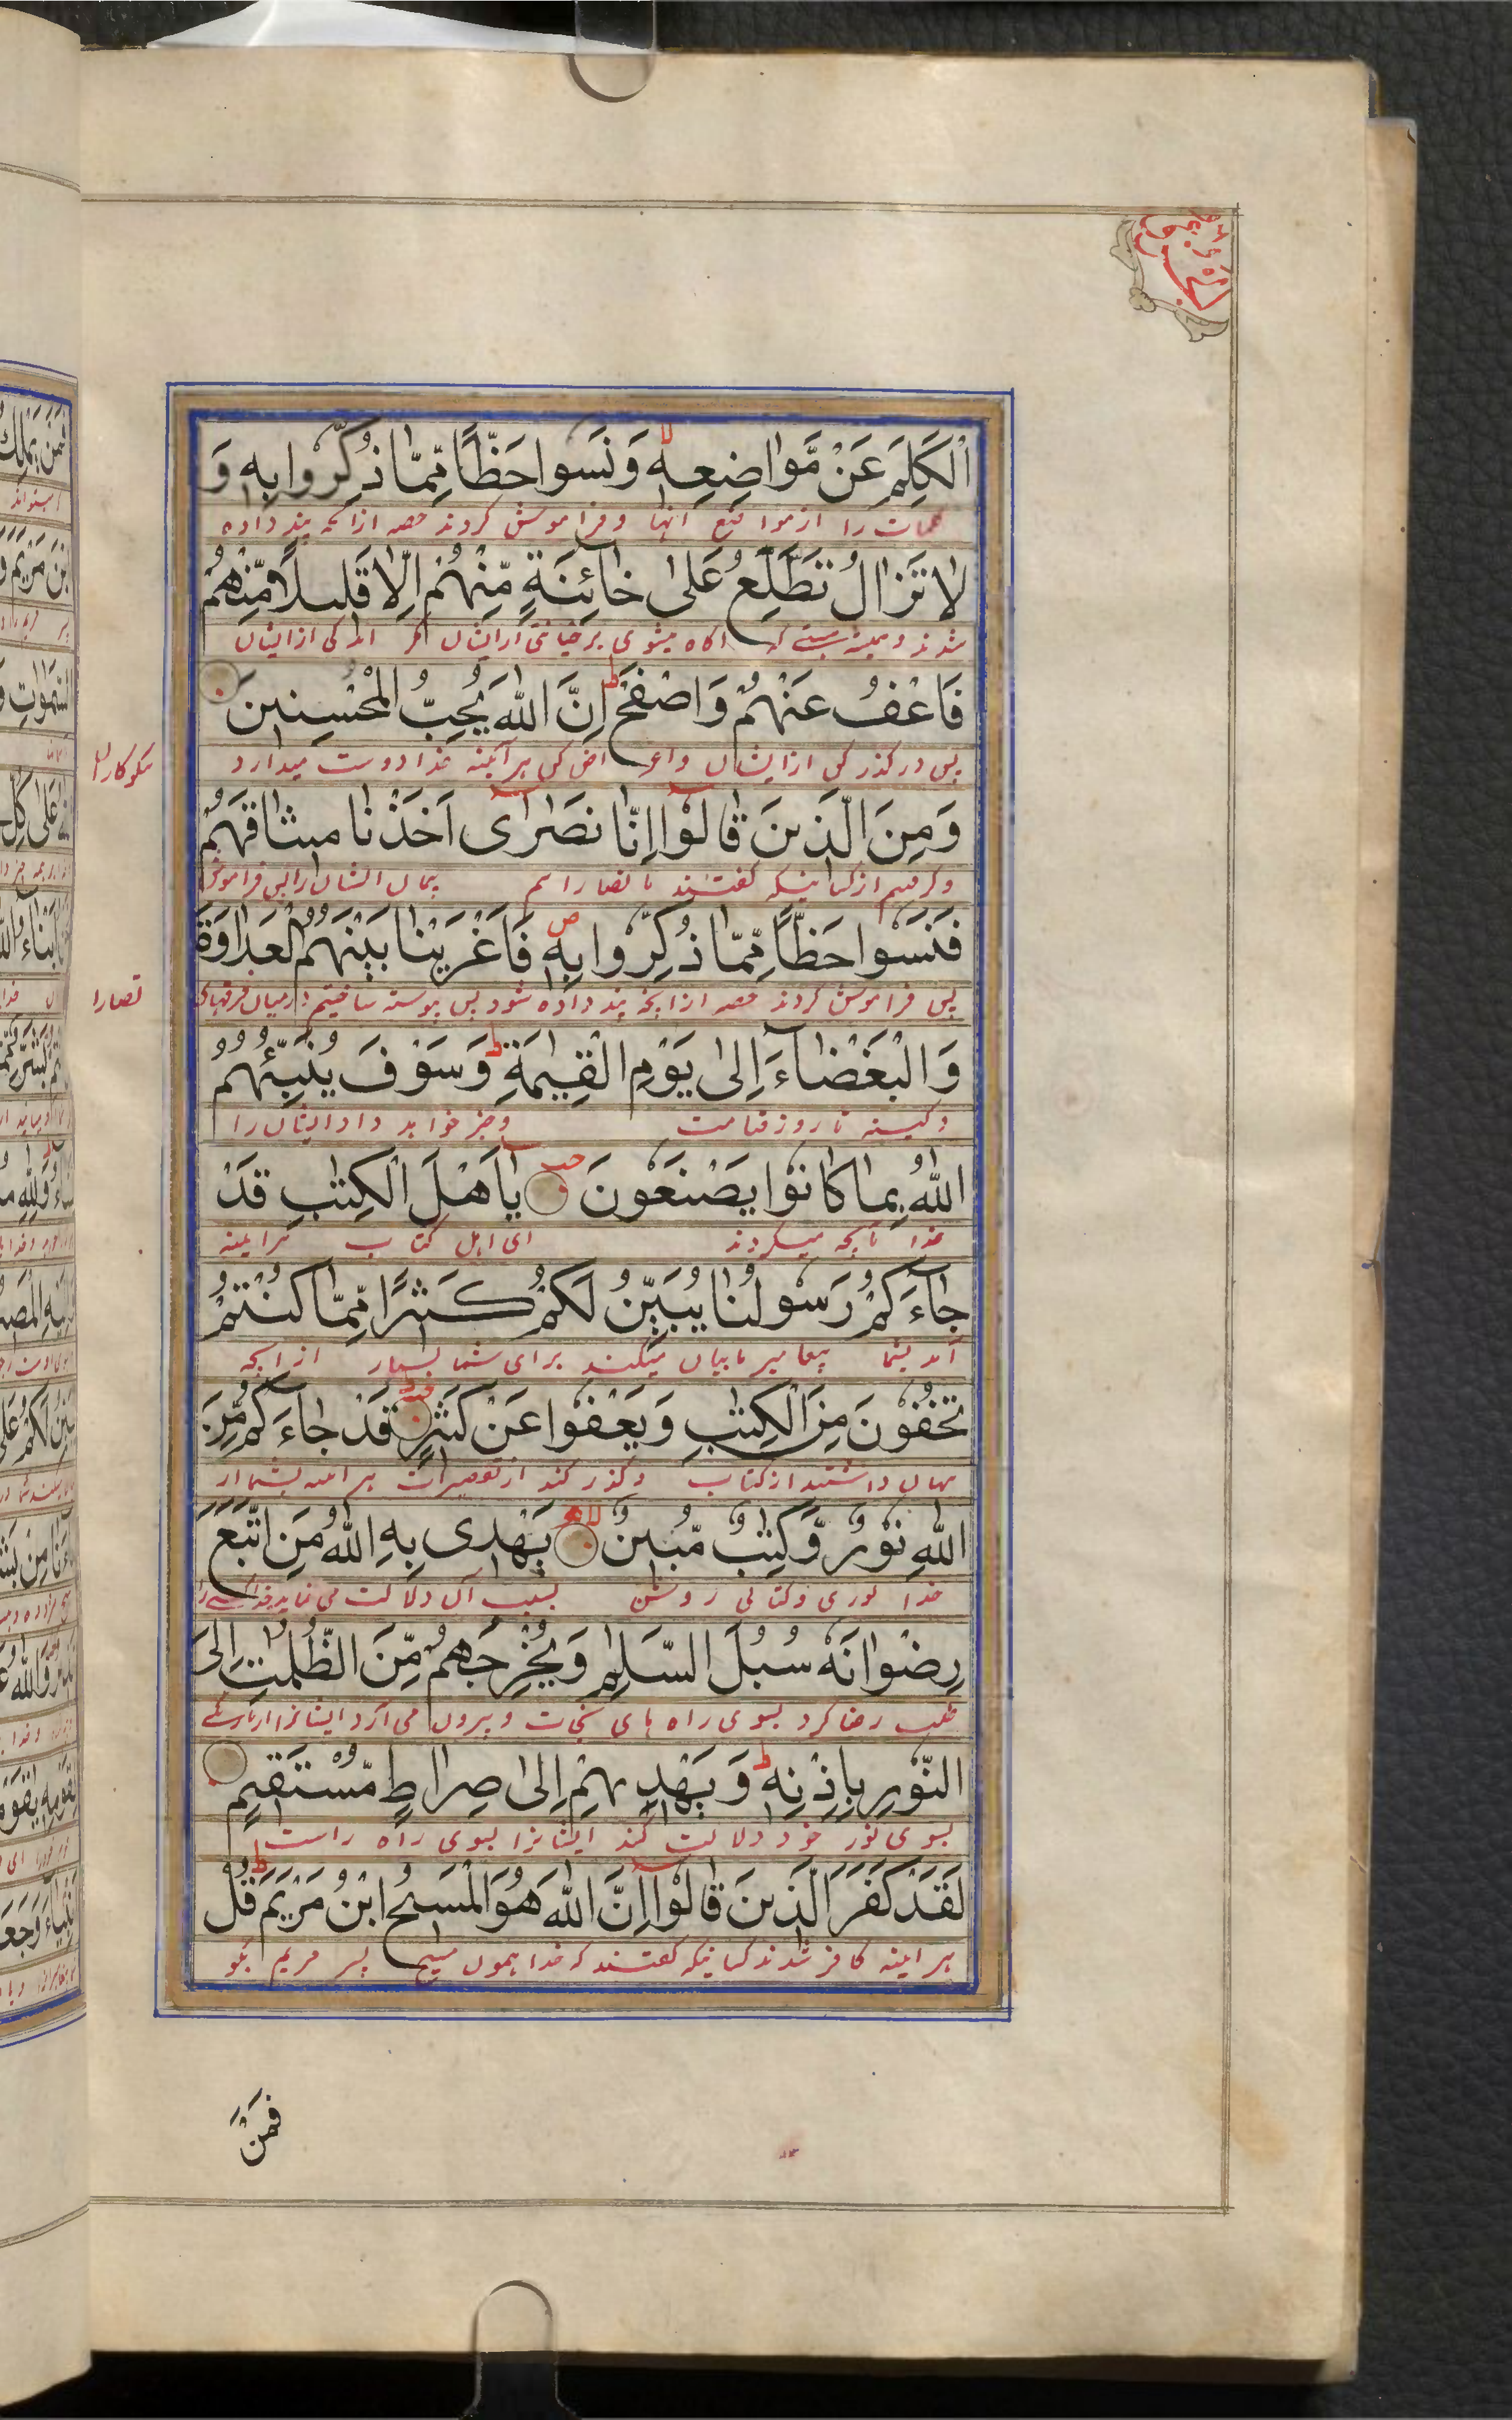 اَلْكَلِمَ عَنْ مَّوَاضِعِهٖ لا وَنَسُوا حَظًّا مِّمَّا ذُكِّرُوا بِهٖ وَ
كلمات را از مواضع انها وفراموش كردند حصه ازانچه پند داده
لَا تَزَالُ تَطَّلِعُ عَلٰى خَآئِنَةٍ مِّنْهُمْ اِلَّا قَلِيلًا مِّنْهُمْ
شدند وهميشه اكاه ميشوى بر خيانتى ازايشان مكر اندكى ازايشان
فَاعْفُ عَنْهُمْ وَاصْفَحْ ط اِنَّ اللّٰهَ يُحِبُّ الْمُحْسِنِينَ
پس در كذر كن ازايشان واعراض كن هرآئينه خدا دوست ميدارد
نكوكارانرا
وَمِنَ الَّذِينَ قَالُوْٓا اِنَّا نَصَارٰٓى اَخَذْنَا مِيثَاقَهُمْ
وكرفتيم ازكسانيكه كفتند ما نصارائيم پيمان ايشان را پس فراموش
فَنَسُوا حَظًّا مِّمَّا ذُكِّرُوا بِهٖ ص فَاَغْرَيْنَا بَيْنَهُمُ الْعَدَاوَةَ
پس فراموش كردند حصه ازانچه پند داده شود پس پيوسته ساختيم درميان فرقهاى
نصارا
وَالْبَغْضَآءَ اِلٰى يَوْمِ الْقِيٰمَةِ ط وَسَوْفَ يُنَبِّئُهُمُ
وكينه تا روز قيامت وخبر خواهد داد ايشان را
اللّٰهُ بِمَا كَانُوا يَصْنَعُونَ يَآ اَهْلَ الْكِتٰبِ قَدْ
خدا بانچه ميكردند اى اهل كتاب هرائينه
جَآءَكُمْ رَسُولُنَا يُبَيِّنُ لَكُمْ كَثِيرًا مِّمَّا كُنْتُمْ
آمد بشما پيغامبر ما بيان ميكند براى شما بسيار ازانچه
تُخْفُونَ مِنَ الْكِتٰبِ وَيَعْفُوا عَنْ كَثِيرٍ قَدْ جَآءَكُمْ مِّنَ
پنهان داشتند از كتاب ودركذر كند از تقصيرات هرائينه بشما از
اللّٰهِ نُورٌ وَّكِتٰبٌ مُّبِينٌ لا يَهْدِى بِهِ اللّٰهُ مَنِ اتَّبَعَ
خدا نورى وكتابى روشن بسبب آن دلالت مى نمايد خدا كسے را
رِضْوَانَهٗ سُبُلَ السَّلٰمِ وَيُخْرِجُهُمْ مِّنَ الظُّلُمٰتِ اِلَى
طلب رضا كرد بسوى راه هاى نجات وبيرون مى آرد ايشانرا از تاريكى
النُّورِ بِاِذْنِهٖ ط وَيَهْدِيهِمْ اِلٰى صِرَاطٍ مُّسْتَقِيمٍ
بسوى نور خود دلالت كند ايشانرا بسوى راه راست
لَقَدْ كَفَرَ الَّذِينَ قَالُوْٓا اِنَّ اللّٰهَ هُوَ الْمَسِيحُ ابْنُ مَرْيَمَ ط قُلْ
هرائينه كافر شدند كسانيكه كفتند كه خدا همون مسيح پسر مريم بكو
فَمَنْ